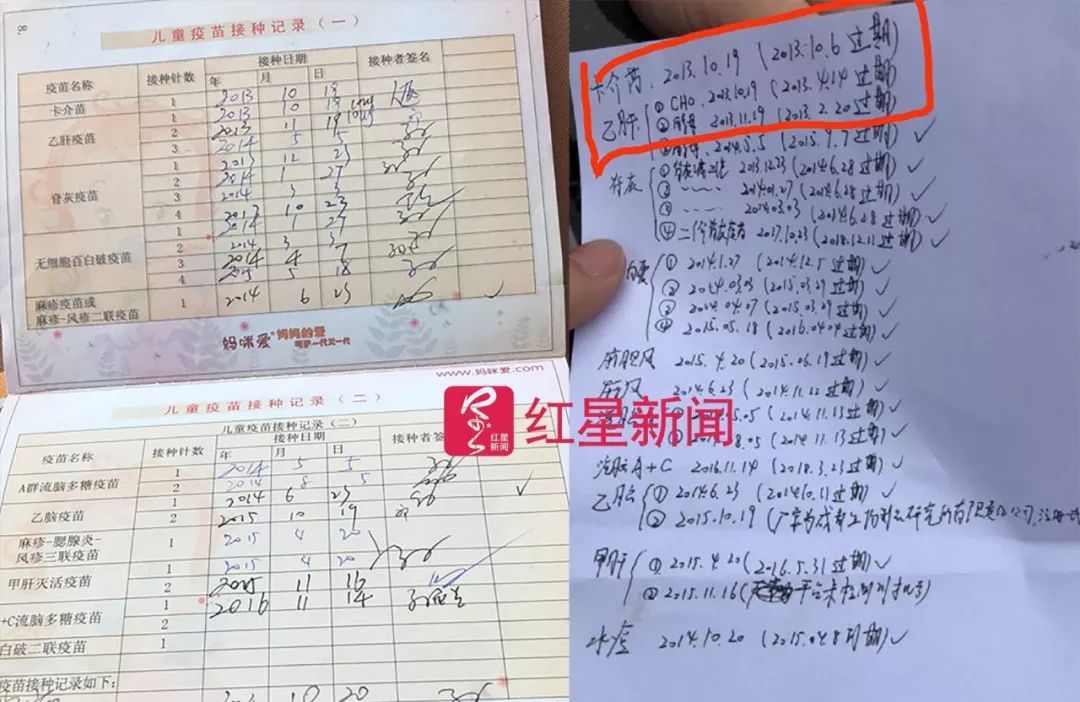 8
儿童疫苗接种记录（一）
疫苗名称 接种针数 接种日期 接种者签名
年 月 日
卡介苗 1 2013 10 19
乙肝疫苗 1 2013 10 19
2 2013 11 19
3 2014 5 5
脊灰疫苗 1 2013 12 23
2 2014 1 27
3 2014 3 3
4 2017 10 23
无细胞百白破疫苗 1 2014 1 27
2 2014 3 3
3 2014 4 7
4 2015 5 18
麻疹疫苗或
麻疹-风疹二联疫苗 1 2014 6 23
妈咪爱 妈妈的爱
呵护一代又一代
www.妈咪爱.com
儿童疫苗接种记录（二）
儿童疫苗接种记录（二）
疫苗名称 接种针数 接种日期 接种者签
年 月 日
A群流脑多糖疫苗 1 2014 5 5
2 2014 8 5
乙脑疫苗 1 2014 6 23
2 2015 10 19
麻疹-腮腺炎-
风疹三联疫苗 1 2015 4 20
甲肝灭活疫苗 1 2015 4 20
2 2015 11 16
+C流脑多糖疫苗 1 2016 11 14
2
白破二联疫苗 1
疫苗接种记录如下：
10 20
红星新闻
红星新闻
卡介苗. 2013.10.19 (2013.10.6过期)
乙肝 ① CHO. 2013.10.19 (2013.4.14过期)
② 2013.11.19 (2013.2.20过期)
③ 2014.5.5 (2015.9.7过期)
① 2013.12.23 (2014.6.28过期)
② 2014.01.27 (2014.6.28过期)
③ 2014.03.03 (2014.6.28过期)
④ 2017.10.23 (2018.12.11过期)
① 2014.1.27 (2014.12.5过期)
② 2014.03.03 (2015.03.29过期)
③ 2014.04.07 (2015.03.29过期)
④ 2015.05.18 (2016.04.04过期)
麻腮风 2015.4.20 (2015.06.19过期)
麻风 2014.6.23 (2014.11.22过期)
① 5.05 (2014.11.13过期)
② 8.05 (2014.11.13过期)
流脑A+C 2016.11.14 (2018.3.23过期)
乙脑 ① 2014.6.23 (2014.10.11过期)
② 2015.10.19 (厂家为成都生物制品研究所有限责任公司,
甲肝 ① 2015.4.20 (2016.5.31过期)
② 2015.11.16 (平台未检测到批号)
水痘 2014.10.20 (2015.04.8到期)